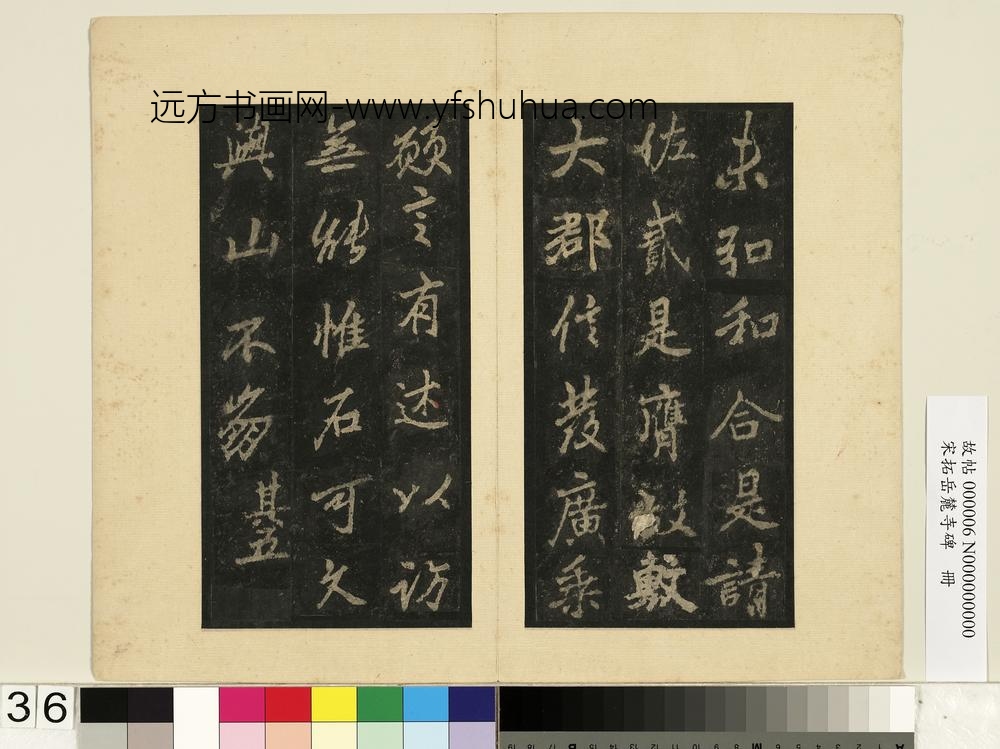 远方书画网-www.yfshuhua.com
未弘和合是請
佐貳是膺故敷
大郡信發廣乘
願言有述以訪
無能惟石可久
與山不崩其五
故帖 000006 N000000000
宋拓岳麓寺碑 冊
36